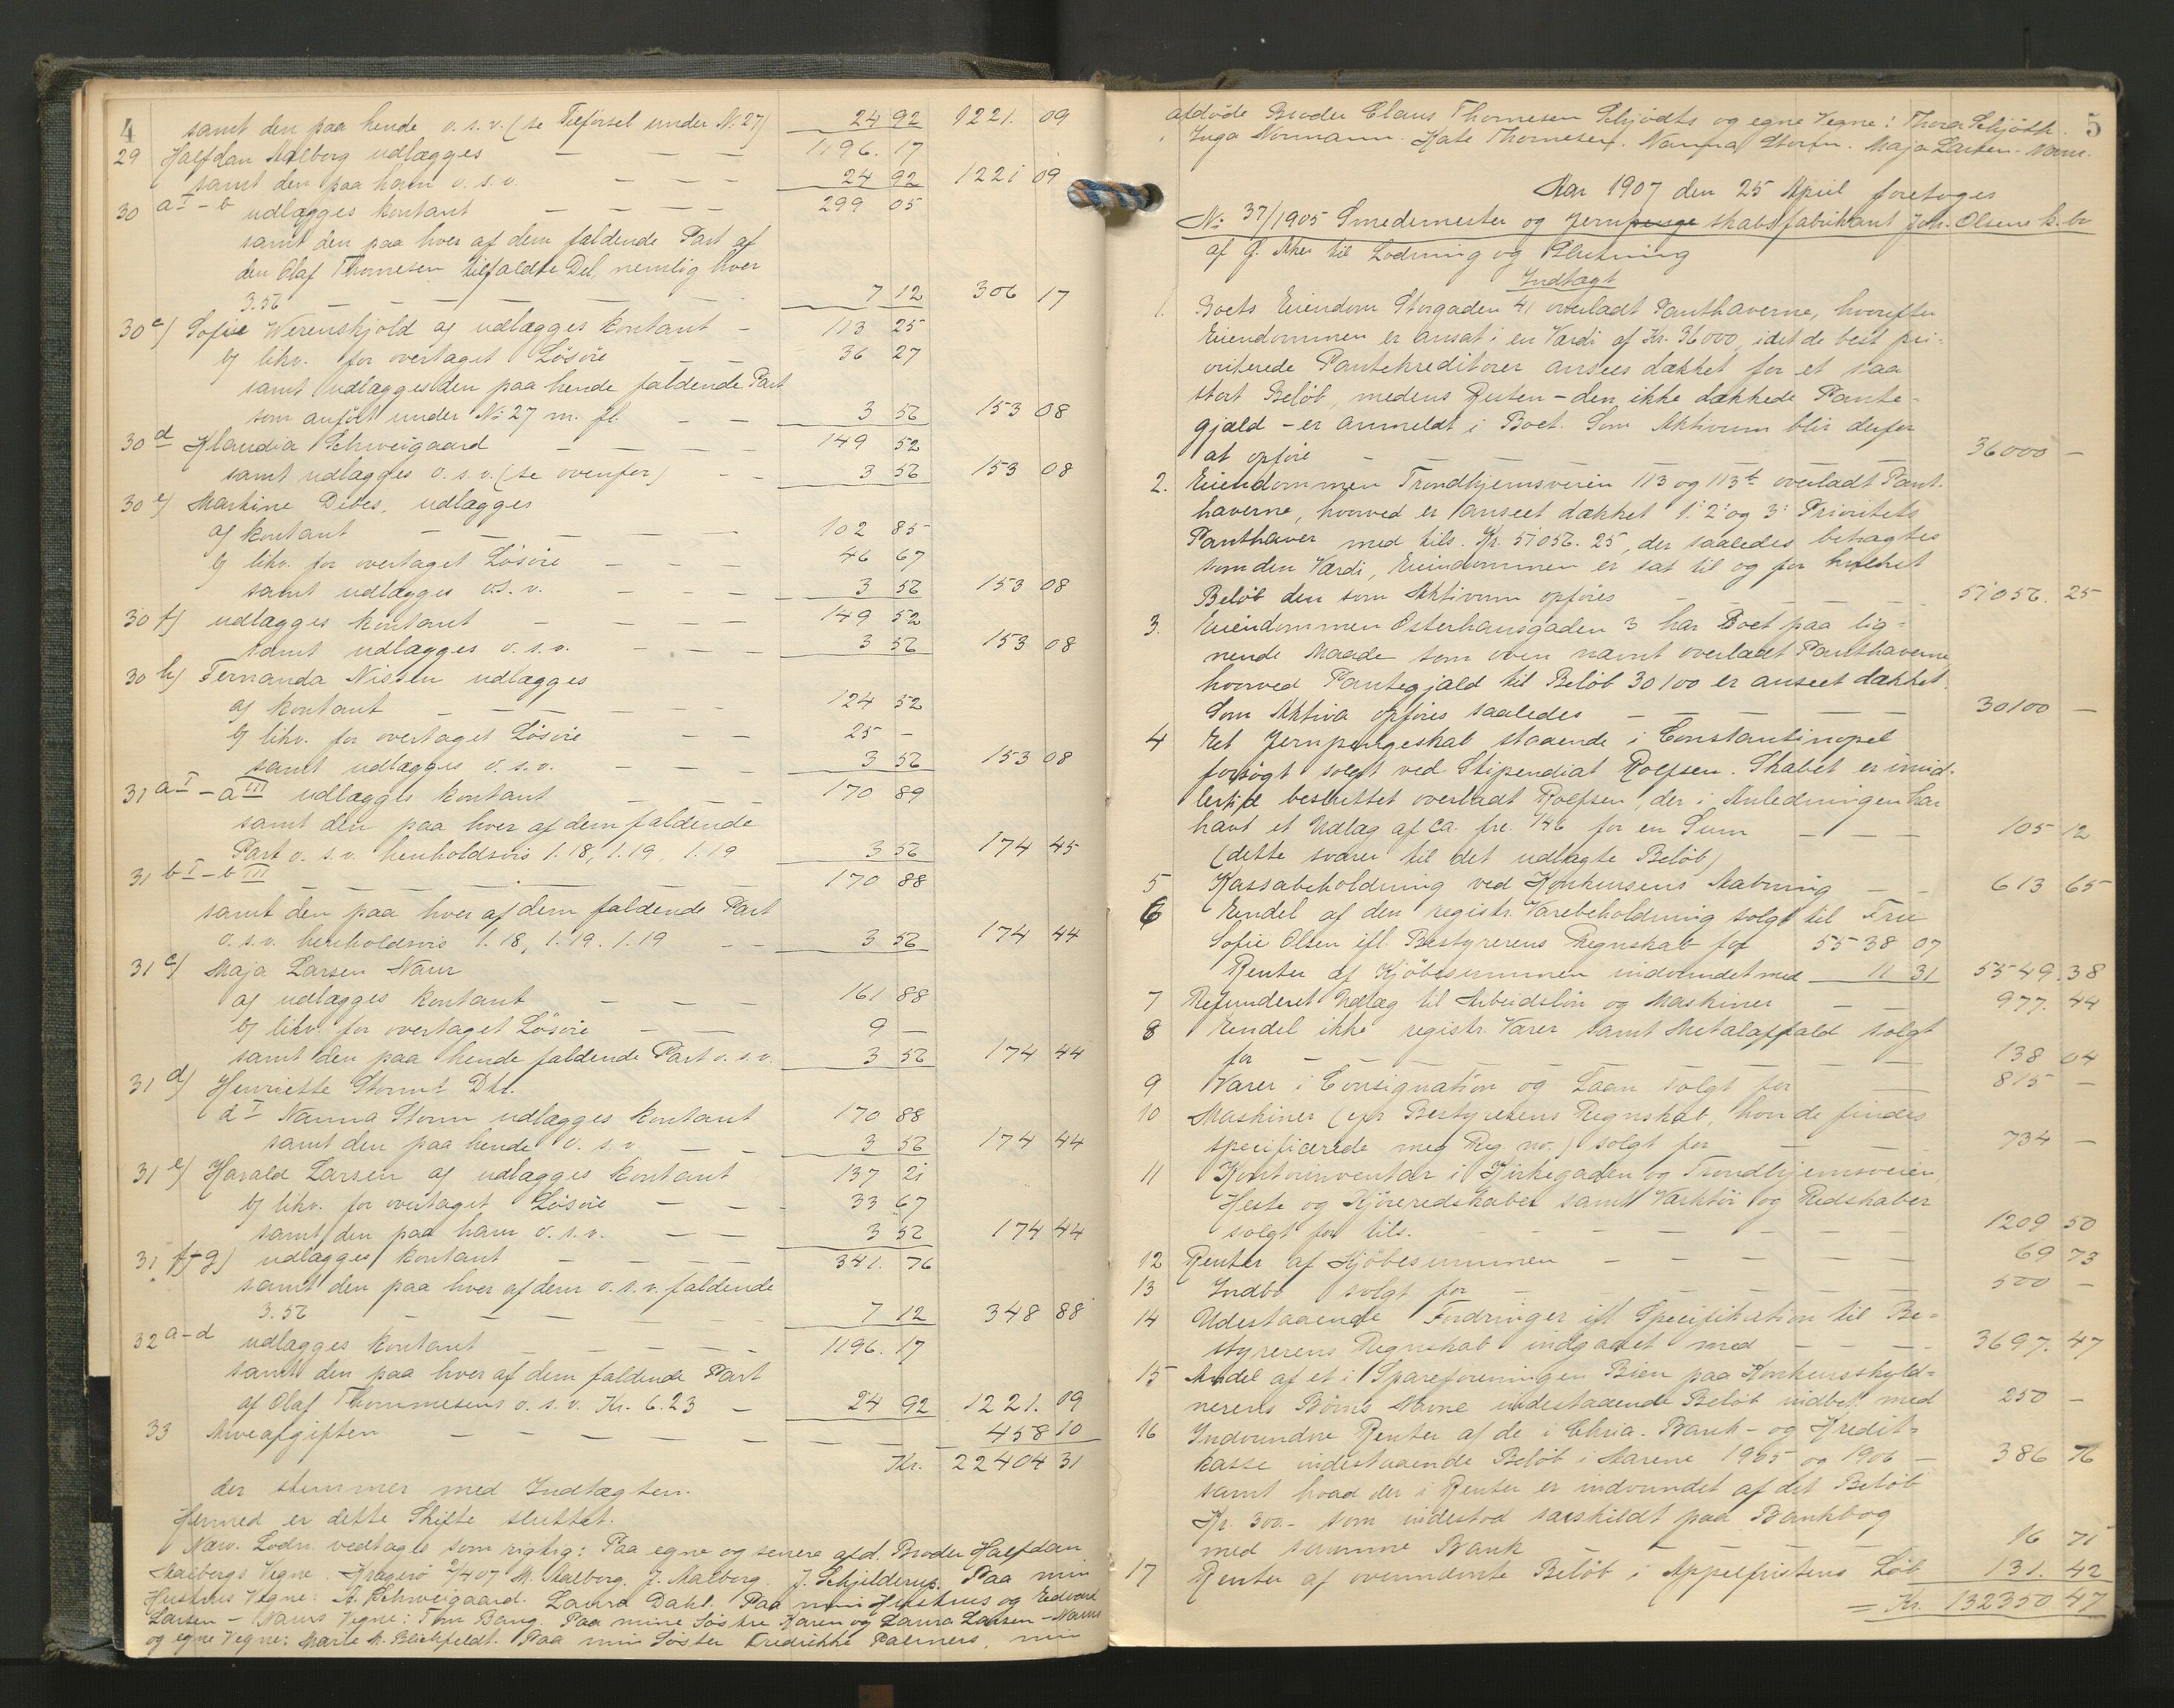 4
samt den paa hende o.s.v. (se Tilførsel under No 27) 24 92 1221. 09
29 Halfdan Aalborg udlægges — — — 1196. 17
samt den paa ham o.s.v. — — — 24 92 1221 09
30 a I - b udlægges kontant — — — — 299 05
samt den paa hver af dem faldende Part af
den Olaf Thomesen tilfaldte Del, nemlig hver
3.56 — — — — — — 7 12 306 17
30 c) Sofie Werenskjold a) udlægges kontant — 113 25
b) likv. for overtaget Løsøre — — 36 27
samt udlægges den paa hende faldende Part
som anført under No 27 m. fl. — — 3 56 153 08
30 d Klaudia Schweigaard — — — — 149 52
samt udlægges o.s.v. (se ovenfor) — — 3 56 153 08
30 e) Martine Debes, udlægges
a) kontant — — — — — 102 85
b) likv. for overtaget Løsøre — — — 46 67
samt udlægges o.s.v. — — — 3 56 153 08
30 f) udlægges kontant — — — — 149 52
samt udlægges o.s.v. — — — 3 56 153 08
30 h) Fernanda Nissen udlægges
a) kontant — — — — — 124 52
b) likv. for overtaget Løsøre — — 25 —
samt udlægges o.s.v. — — — 3 56 153 08
31 a I - a III udlægges kontant — — — 170 89
samt den paa hver af dem faldende
Part o.s.v. henholdsvis 1.18, 1.19, 1.19 3 56 174 45
31 b I - b III — — — — — — 170 88
samt den paa hver af dem faldende Part
o.s.v. henholdsvis 1.18, 1.19. 1.19 — — 3 56 174 44
31 c) Maja Larsen Naur
a) udlægges kontant — — — 161 88
b) likv. for overtaget Løsøre — — 9 —
samt den paa hende faldende Part o.s.v. 3 56 174 44
31 d) Henriette Storms Dtr.
d I Nanna Storm udlægges kontant 170 88
samt den paa hende o.s.v. — — 3 56 174 44
31 e) Harald Larsen a) udlægges kontant 137 21
b) likv. for overtaget Løsøre — — 33 67
samt den paa ham o.s.v. — — 3 56 174 44
31 f-g) udlægges kontant — — — — 341. 76
samt den paa hver af dem o.s.v. faldende
3.56 — — — — — 7 12 348 88
32 a-d udlægges kontant — — — — 1196. 17
samt den paa hver af dem faldende Part
af Olaf Thommesens o.s.v. Kr. 6.23 — 24 92 1221. 09
33 Arveafgiften — — — — — — — 458 10
Kr. 22404 31
der stemmer med Indtægten.
Hermed er dette Skifte sluttet.
Nærv. Lodn. vedtages som rigtig: Paa egne og senere afd. Broder Halfdan
Aalborgs Vegne. Kragerø 2/4 07 M. Aalborg. J. Aalborg. J. Schjelderup. Paa min
Hustrus Vegne: A. Schweigaard. Laura Dahl. Paa min Hustrus og Edvard
Larsen - Naurs Vegne: Tom Bang. Paa mine Søstre Karen og Laura Larsen - Naurs
og egne Vegne: Marte M. Blichfeldt. Paa min Søster Fredrikke Palmers, min
5
afdøde Broder Claus Thomesen Schjødts og egne Vegne: Thora Schjøth.
Inga Normann. Kate Thomesen. Nanna Storm. Maja Larsen-Naur.
Aar 1907 den 25 April foretoges
No 37/1905 Smedemester og Jernpenge skabsfabrikant Joh. Olsens k.bo
af G. Aker til Lodning og Slutning
Indtægt
1. Boets Eiendom Storgaden 41 overladt Panthaverne, hvorefter
Eiendommen er ansat i en Værdi af Kr. 36000, idet de best pri-
oriterede Pantekreditorer ansees dækket for et saa
stort Beløb, medens Resten - den ikke dækkede Pante-
gjæld - er anmeldt i Boet. Som Aktivum blir derfor
at opføre — — — — — — — 36000 —
2. Eiendommen Trondhjemsveien 113 og 113 b overladt Pant-
haverne, hvorved er anseet dækket 1. 2. og 3. Prioritets
Panthaver med tils. Kr. 57056. 25, der saaledes betragtes
som den Værdi, Eiendommen er sat til og for hvilket
Beløb den som Aktivum opføres — — — — 57056. 25
3. Eiendommen Osterhausgaden 3 har Boet paa lig-
nende Maade som oven nævnt overladt Panthaverne
hvorved Pantegjæld til Beløb 30100 er anseet dækket.
Som Aktiva opføres saaledes — — — — — 30100 —
4 Et Jernpengeskab staaende i Constantinopel
forsøgt solgt ved Stipendiat Rolfsen. Skabet er imid-
lertid besluttet overladt Rolfsen, der i Anledningen har
havt et Udlæg af ca. frc. 146 for en Sum — — — 105 12
(dette svarer til det udlagte Beløb)
5 Kassabeholdning ved Konkursens Aabning — — 613 65
6 Endel af den registr. Varebeholdning solgt til Fru
Sofie Olsen ifl. Bestyrerens Regnskab for 5538 07
Renter af Kjøbesummen indvundet med 11 31 5549. 38
7 Refunderet Udlæg til Arbeidsløn og Maskiner — — 977. 44
8 Endel ikke registr. Varer samt Metalaffald solgt
for — — — — — — — — 138 04
9 Varer i Consignation og Laan solgt for — — 815 —
10 Maskiner (efr Bestyrerens Regnskab, hvor de findes
specificerede med Reg no.) solgt for — — 734 —
11 Kontorinventar i Kirkegaden og Trondhjemsveien,
Heste og Kjøreredskaber samt Værktøi og Redskaber
solgt for tils. — — — — — — 1209 50
12 Renter af Kjøbesummen — — — — — 69 73
13 Indbo solgt for — — — — — — 500 —
14 Udestaaende Fordringer ifl. Specifikation til Be-
styrerens Regnskab indgaaet med — — — — 3697. 47
15 Andel af et i Spareforeningen Bien paa Konkursskyld-
nerens Børns Navne indestaaende Beløb indbet. med 250 —
16 Indvundne Renter af de i Chria. Bank- og Kredit-
kasse indestaaende Beløb i Aarene 1905 og 1906 — 386 76
samt hvad der i Renter er indvundet af det Beløb
Kr. 300.- som indestod særskildt paa Bankbog
med samme Bank — — — 16 71
17 Renter af ovennævnte Beløb i Appelfristens Løb 131. 42
= Kr. 132350 47